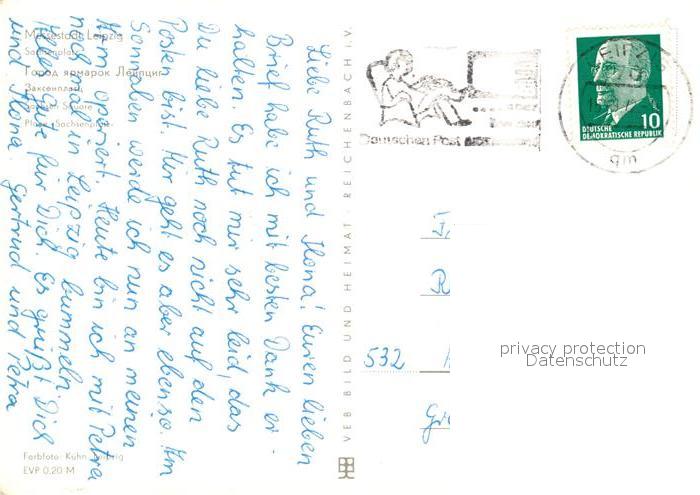 Messestadt Leipzig
Sachsenplatz
Город ярмарок Лейпциг
Заксенплац
Square
Place Sachsenplatz
Liebe Ruth und Ilona! Euren lieben
Brief habe ich mit besten Dank er-
halten. Es tut mir sehr leid, das
Du liebe Ruth noch nicht auf den
Posten bist. Mir geht es aber ebenso. Am
Sonnaben werde ich nun an meinen
Harn operiert. Heute bin ich mit Petra
noch mal in Leipzig bummeln.
Alles Gute für Dich. Es grüßt Dich
und Ilona. Gertrud und Petra
Farbfoto: Kühn, Leipzig
EVP 0,20 M
VEB BILD UND HEIMAT · REICHENBACH i.V.
Deutschen Post
10
DEUTSCHE
DEMOKRATISCHE REPUBLIK
gm
532
privacy protection
Datenschutz